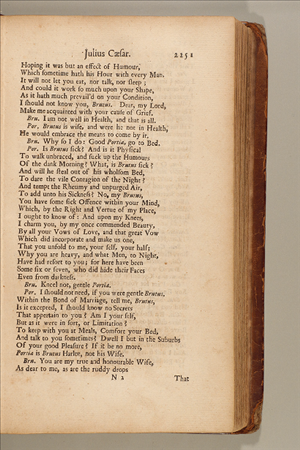 Julius Cæsar. 2251
Hoping it was but an effect of Humour,
Which sometime hath his Hour with every Man.
It will not let you eat, nor talk, nor sleep;
And could it work so much upon your Shape,
As it hath much prevail'd on your Condition,
I should not know you, Brutus. Dear, my Lord,
Make me acquainted with your cause of Grief.
Bru. I am not well in Health, and that is all.
Por. Brutus is wise, and were he not in Health,
He would embrace the means to come by it.
Bru. Why so I do: Good Portia, go to Bed.
Por. Is Brutus sick? And is it Physical
To walk unbraced, and suck up the Humours
Of the dark Morning? What, is Brutus sick?
And will he steal out of his wholsom Bed,
To dare the vile Contagion of the Night?
And tempt the Rheumy and unpurged Air,
To add unto his Sickness? No, my Brutus,
You have some sick Offence within your Mind,
Which, by the Right and Vertue of my Place,
I ought to know of: And upon my Knees,
I charm you, by my once commended Beauty,
By all your Vows of Love, and that great Vow
Which did incorporate and make us one,
That you unfold to me, your self, your half;
Why you are heavy, and what Men, to Night,
Have had resort to you; for here have been
Some six or seven, who did hide their Faces
Even from darkness.
Bru. Kneel not, gentle Portia.
Por. I should not need, if you were gentle Brutus.
Within the Bond of Marriage, tell me, Brutus,
Is it excepted, I should know no Secrets
That appertain to you? Am I your self,
But as it were in sort, or Limitation?
To keep with you at Meals, Comfort your Bed,
And talk to you sometimes? Dwell I but in the Suburbs
Of your good Pleasure? If it be no more,
Portia is Brutus Harlot, not his Wife.
Bru. You are my true and honourable Wife,
As dear to me, as are the ruddy drops
N 2 That